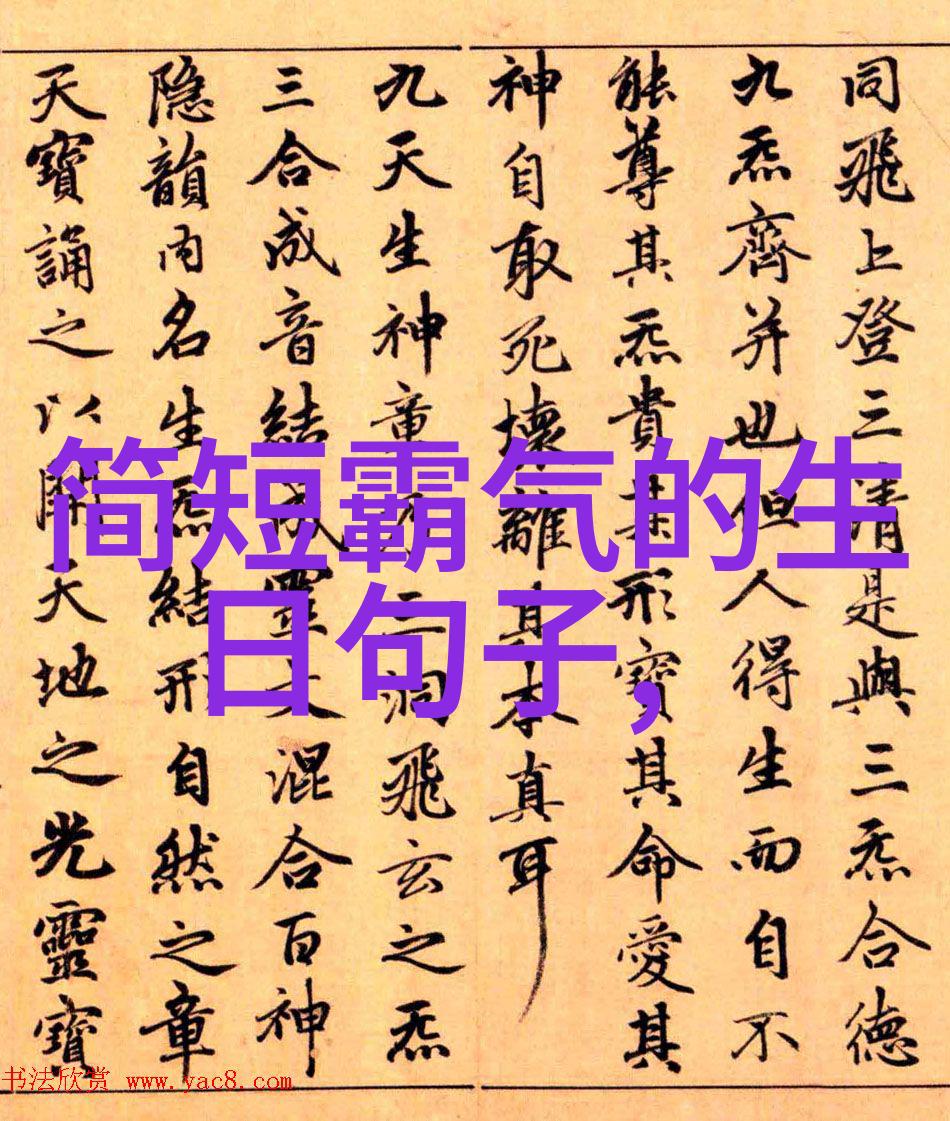 同飛上登三清是與三炁合德
九炁齊并也但人得生而自不
能尊其炁貴其形寶其命愛其
神自取死壞離其本真耳
九天生神章乃三洞飛玄之炁
三合成音結成靈文混合百神
隐韻内名生炁結形自然之章
天寶誦之以開天地之光靈寶
简短霸气的生
日句子,
书法欣赏 www.yac8.com